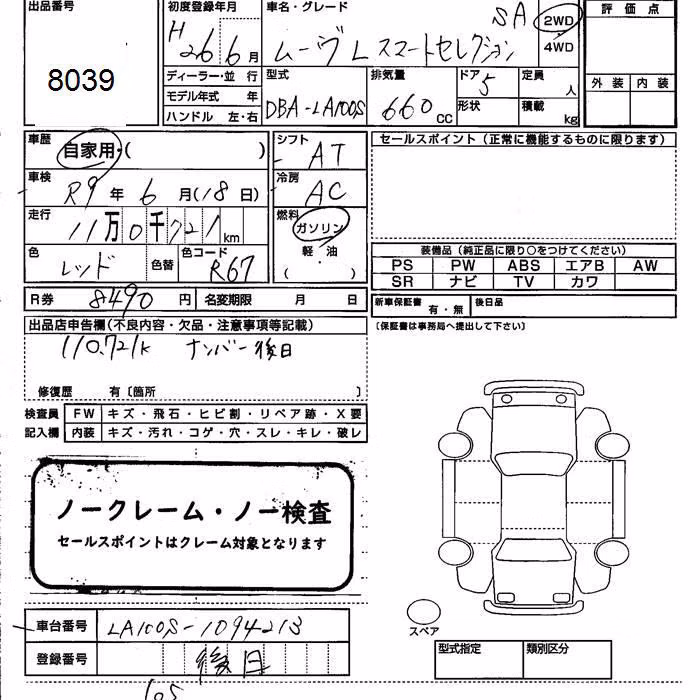 出品番号
8039
初度登録年月
H 26 6 月
車名・グレード
ムーヴ L スマートセレクション SA
2WD
4WD
評価点
外装 内装
ディーラー・並 行
モデル年式 年
ハンドル 左・右
型式
DBA-LA100S
排気量
660 CC
ドア
5
形状
定員
人
積載
kg
車歴
自家用・( )
車検
R9 年 6 月(18 日)
走行
11万0千721 km
色
レッド
色替
色コード
R67
シフト
AT
冷房
AC
燃料
ガソリン
軽・油
( )
セールスポイント (正常に機能するものに限ります)
装備品 (純正品に限り○をつけてください)
PS PW ABS エアB AW
SR ナビ TV カワ
R券 8490 円 名変期限 月 日
新車保証書 有・無 後日品
(保証書は事務局へ提出して下さい)
出品店申告欄(不良内容・欠品・注意事項等記載)
110.721K ナンバー後日
修復歴 有〔箇所 〕
検査員記入欄
FW キズ・飛石・ヒビ割・リペア跡・X要
内装 キズ・汚れ・コゲ・穴・スレ・キレ・破レ
ノークレーム・ノー検査
セールスポイントはクレーム対象となります
車台番号 LA100S-1094213
登録番号 後日
スペア
型式指定 類別区分
105